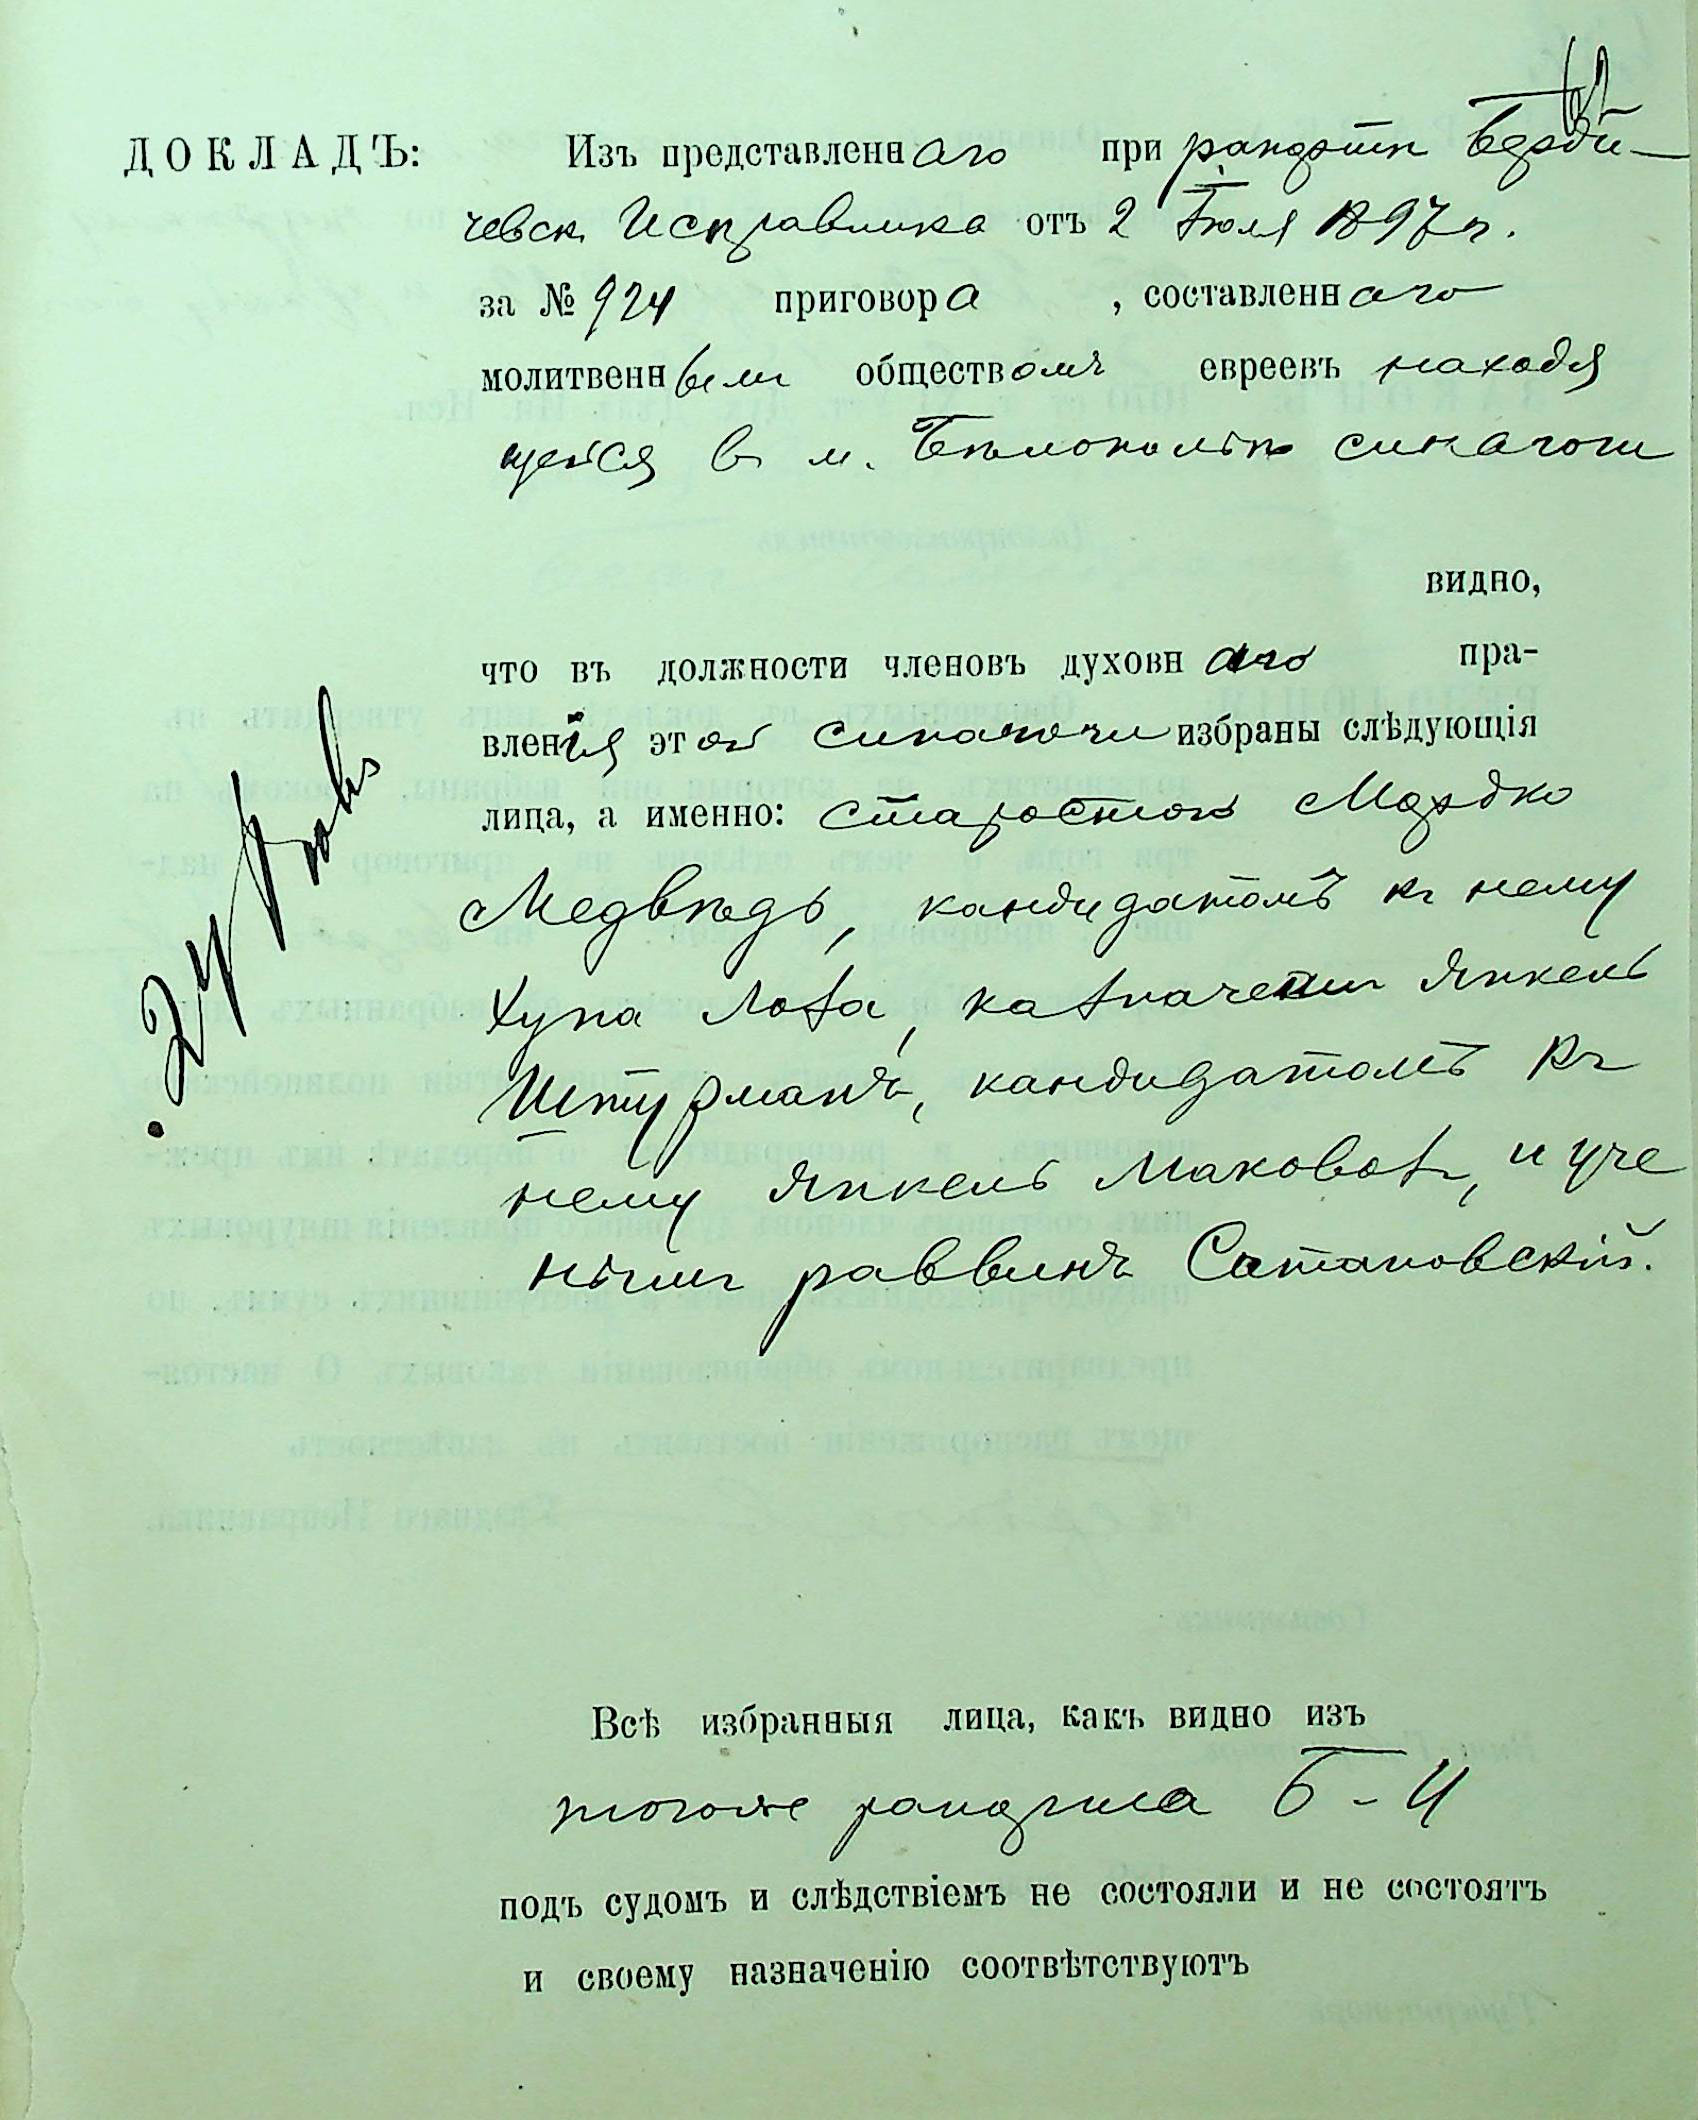 ДОКЛАДЪ: Изъ представленнаго при рапортѣ Бердичевск. Исправника отъ 2 Іюля 1897 г.
за № 924 приговора, составленнаго
молитвеннымъ обществомъ евреевъ находя
щейся въ м. Бѣлополье синагоги
видно,
что въ должности членовъ духовнаго пра-
вленія этой синагоги избраны слѣдующія
лица, а именно: старостою Мордко
Медвѣдь, кандидатомъ къ нему
Хуна Лоза, казначеемъ Янкель
Штурманъ, кандидатомъ къ
нему Янкель Маковоз, и уче
нымъ раввинъ Сатановскій.
24 Іюля
Всѣ избранныя лица, какъ видно изъ
тогоже рапорта
подъ судомъ и слѣдствіемъ не состояли и не состоятъ
и своему назначенію соотвѣтствуютъ